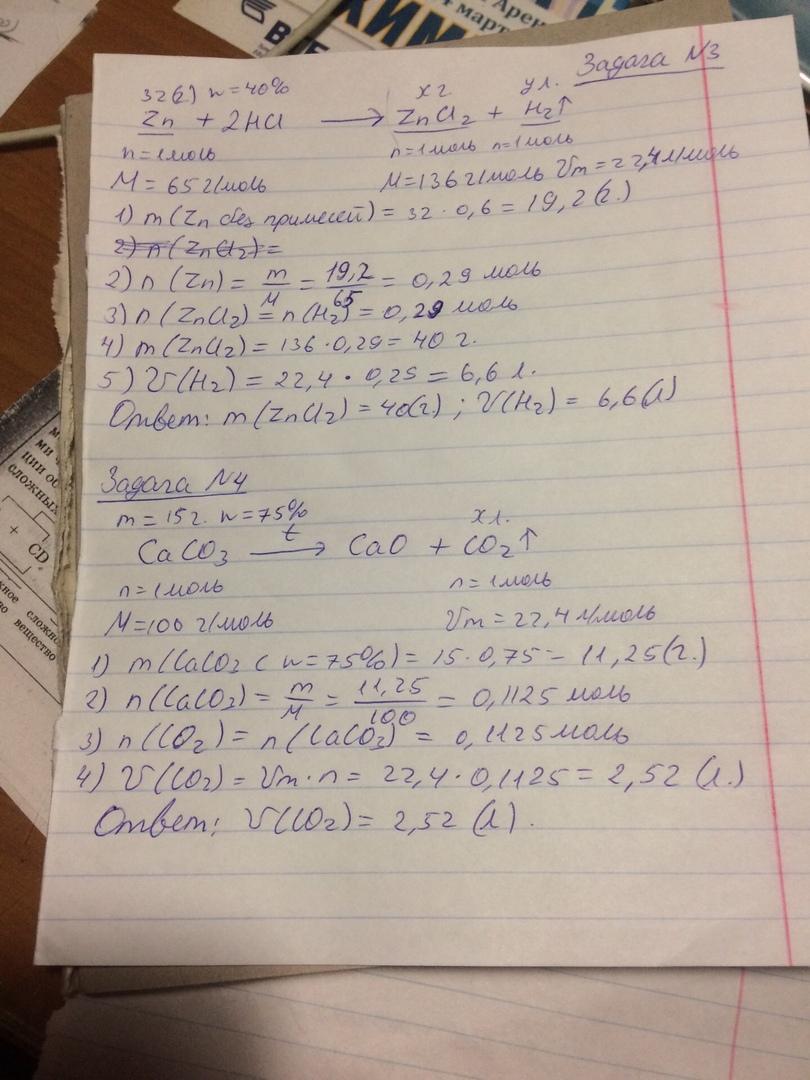 Арен
4 март
ХИМ
ВЕ
Задача №3
32(г) w=40% x г y л.
Zn + 2HCl → ZnCl2 + H2↑
n=1моль n=1моль n=1моль
M=65 г/моль M=136 г/моль Vm=22,4 л/моль
1) m(Zn без примесей) = 32 · 0,6 = 19,2 (г.)
2) n(ZnCl2) =
2) n(Zn) = m/M = 19,2/65 = 0,29 моль
3) n(ZnCl2) = n(H2) = 0,29 моль
4) m(ZnCl2) = 136 · 0,29 = 40 г.
5) V(H2) = 22,4 · 0,29 = 6,6 л.
Ответ: m(ZnCl2) = 40(г) ; V(H2) = 6,6(л)
Задача №4
m = 15 г. w = 75% x л.
CaCO3 t→ CaO + CO2↑
n=1моль n=1моль
M=100 г/моль Vm=22,4 л/моль
1) m(CaCO3 с w=75%) = 15 · 0,75 = 11,25(г.)
2) n(CaCO3) = m/M = 11,25/100 = 0,1125 моль
3) n(CO2) = n(CaCO3) = 0,1125 моль
4) V(CO2) = Vm · n = 22,4 · 0,1125 = 2,52 (л.)
Ответ: V(CO2) = 2,52 (л).
ми
ции об
сложных
+ CD
сложно
во вещество